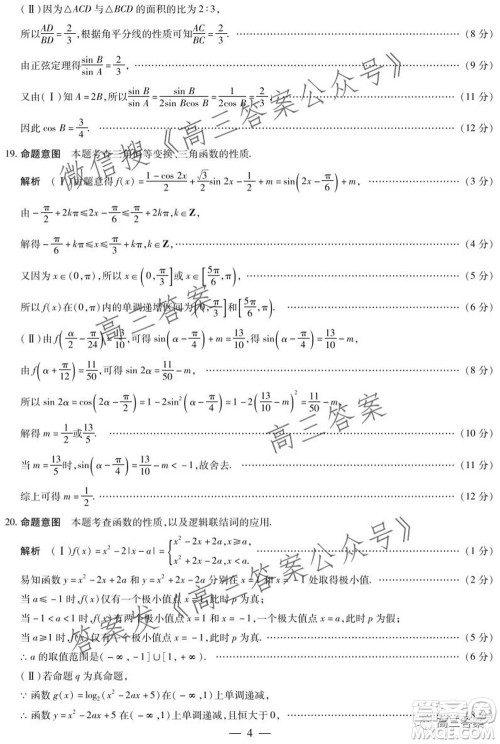 (Ⅱ)因为△ACD 与△BCD 的面积的比为 2:3,
所以AD/BD=2/3,根据角平分线的性质可知AC/BC=2/3. (8 分)
由正弦定理得sin B/sin A=2/3, (9 分)
又由(Ⅰ)知 A=2B,所以sin B/sin A=sin B/2sin Bcos B=1/2cos B=2/3, (11 分)
因此 cos B=3/4. (12 分)
19. 命题意图 本题考查三角恒等变换、三角函数的性质.
解析 (Ⅰ)由题意得 f(x)=(1-cos 2x)/2+√3/2 sin 2x-1/2+m=sin(2x-π/6)+m, (3 分)
由-π/2+2kπ≤2x-π/6≤π/2+2kπ,k∈Z,
解得-π/6+kπ≤x≤π/3+kπ,k∈Z, (4 分)
又因为 x∈(0,π),所以 x∈(0,π/3]或 x∈[5π/6,π), (5 分)
所以 f(x)在(0,π)内的单调递增区间为(0,π/3]和[5π/6,π). (6 分)
(Ⅱ)由 f(α/2-π/24)=13/10,可得 sin(α-π/4)+m=13/10, (7 分)
由 f(α+π/12)=11/50,可得 sin 2α+m=11/50, (8 分)
所以 sin 2α=cos(2α-π/2)=1-2sin²(α-π/4)=1-2(13/10-m)²=11/50-m, (9 分)
解得 m=1/2或13/5. (10 分)
当 m=13/5时,sin(α-π/4)=13/10-m<-1,故舍去.
综上可得 m=1/2. (12 分)
20. 命题意图 本题考查函数的性质,以及逻辑联结词的应用.
解析 (Ⅰ)f(x)=x²-2|x-a|={x²-2x+2a,x≥a, x²+2x-2a,x<a. (1 分)
易知函数 y=x²-2x+2a 和 y=x²+2x-2a 分别在 x=1 和 x=-1 处取得极小值. (2 分)
当 a≤-1 时,f(x)仅有一个极小值点 x=1,此时 p 为真; (3 分)
当-1<a<1 时,f(x)有两个极小值点 x=1 和 x=-1,一个极大值点 x=a,此时 p 为假; (4 分)
当 a≥1 时,f(x)仅有一个极小值点 x=-1,此时 p 为真. (5 分)
∴ a 的取值范围是(-∞,-1]∪[1,+∞). (6 分)
(Ⅱ)若命题 q 为真命题,
∵ 函数 g(x)=log₂(x²-2ax+5)在(-∞,1]上单调递减,
∴ 函数 y=x²-2ax+5 在(-∞,1]上单调递减,
— 4 —
微信搜《高三答案公众号》
高三答案
高三答案
答案发《高三答案公众号》
高三答案